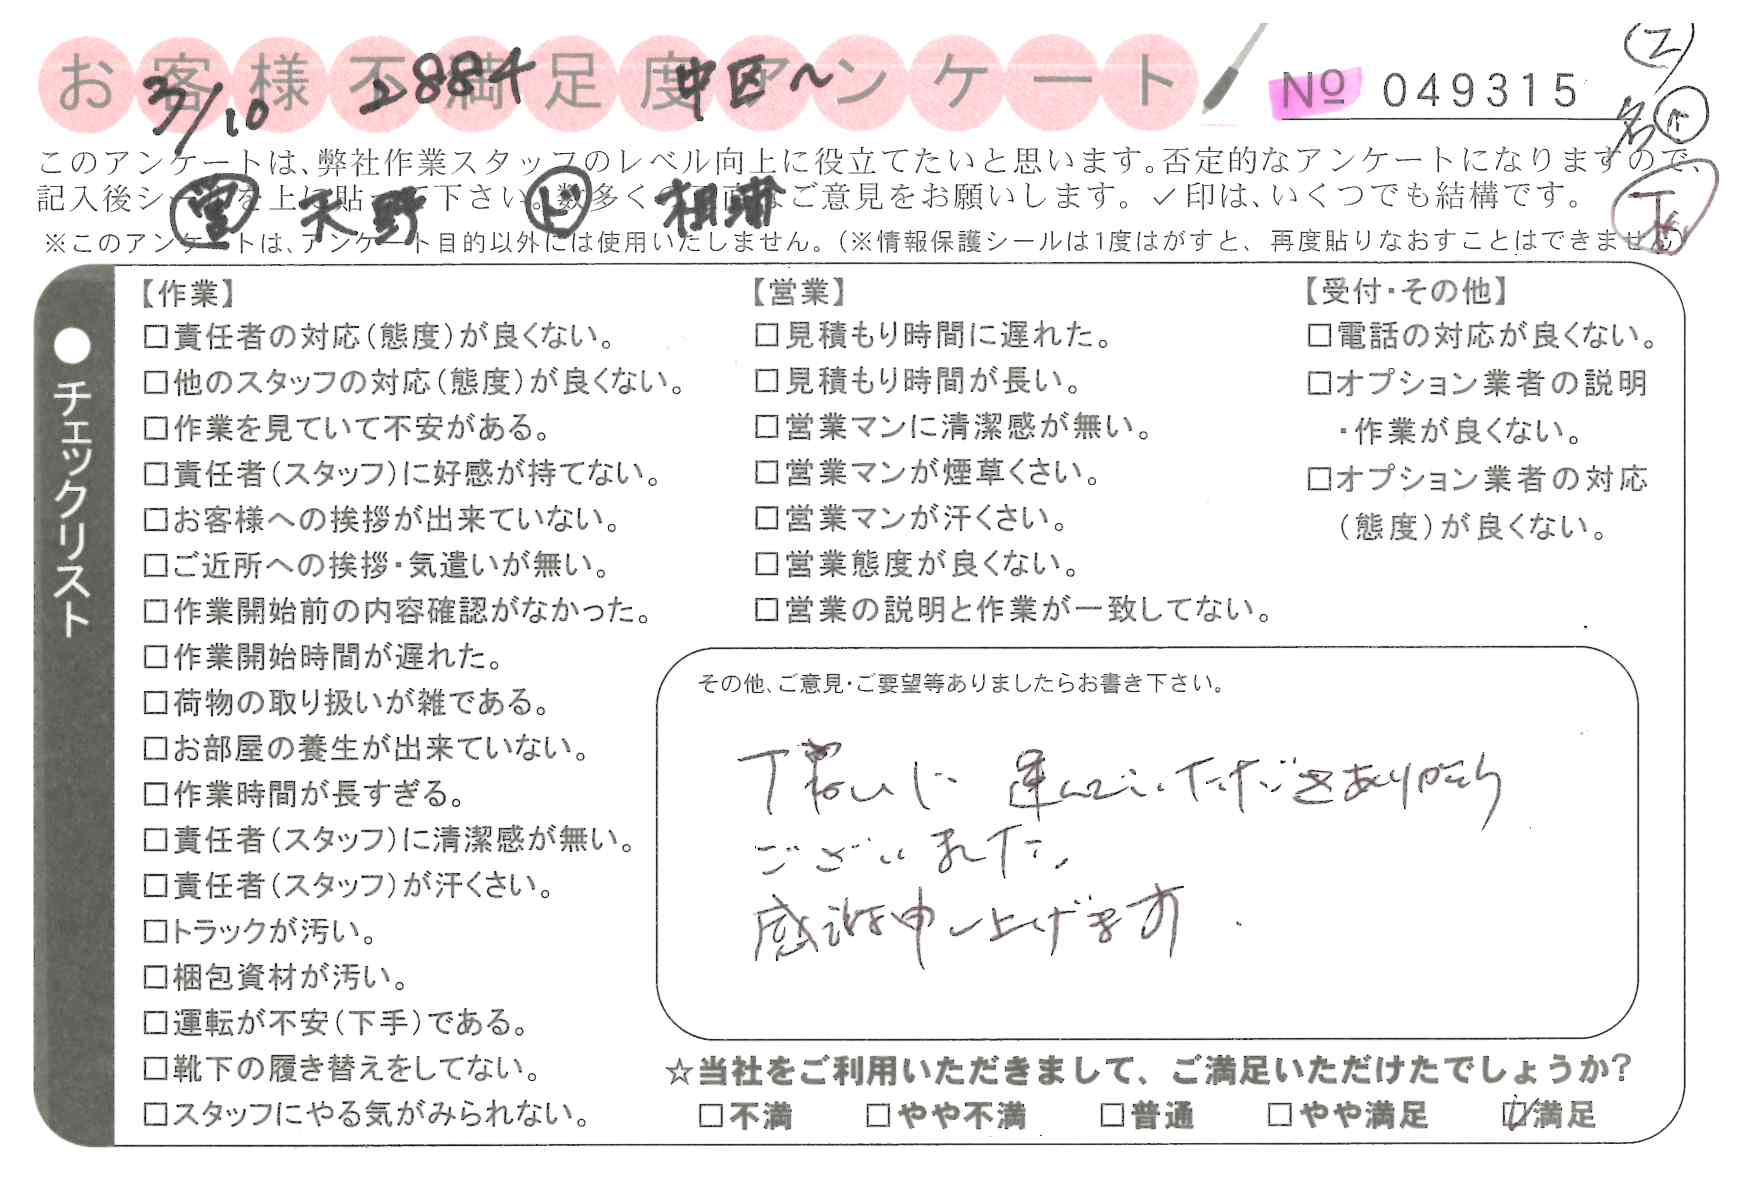 お客様不満足度アンケート
3/10 2884 中区〜
№ 049315
(2)
このアンケートは、弊社作業スタッフのレベル向上に役立てたいと思います。否定的なアンケートになりますので、
記入後シールを上に貼って下さい。数多くの正直なご意見をお願いします。✓印は、いくつでも結構です。
天野 ド
※このアンケートは、アンケート目的以外には使用いたしません。(※情報保護シールは1度はがすと、再度貼りなおすことはできません)
●チェックリスト
【作業】
□責任者の対応(態度)が良くない。
□他のスタッフの対応(態度)が良くない。
□作業を見ていて不安がある。
□責任者(スタッフ)に好感が持てない。
□お客様への挨拶が出来ていない。
□ご近所への挨拶・気遣いが無い。
□作業開始前の内容確認がなかった。
□作業開始時間が遅れた。
□荷物の取り扱いが雑である。
□お部屋の養生が出来ていない。
□作業時間が長すぎる。
□責任者(スタッフ)に清潔感が無い。
□責任者(スタッフ)が汗くさい。
□トラックが汚い。
□梱包資材が汚い。
□運転が不安(下手)である。
□靴下の履き替えをしてない。
□スタッフにやる気がみられない。
【営業】
□見積もり時間に遅れた。
□見積もり時間が長い。
□営業マンに清潔感が無い。
□営業マンが煙草くさい。
□営業マンが汗くさい。
□営業態度が良くない。
□営業の説明と作業が一致してない。
【受付・その他】
□電話の対応が良くない。
□オプション業者の説明
・作業が良くない。
□オプション業者の対応
(態度)が良くない。
その他、ご意見・ご要望等ありましたらお書き下さい。
丁寧に運んでいただきありがとう
ございました。
感謝申し上げます.
☆当社をご利用いただきまして、ご満足いただけたでしょうか?
□不満 □やや不満 □普通 □やや満足 ☑満足